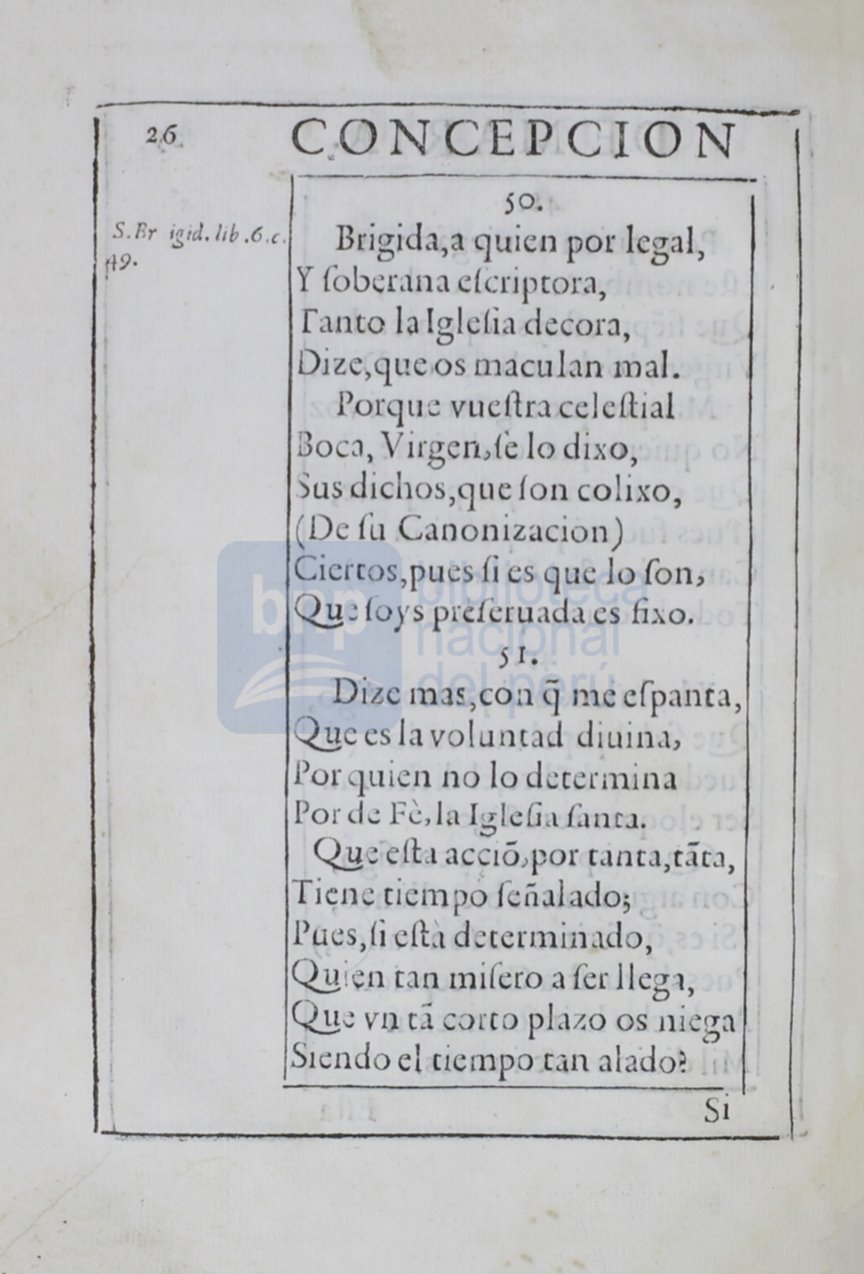 26 CONCEPCION
50.
S. Brigid. lib. 6. c.
49.
Brigida, a quien por legal,
Y ſoberana eſcriptora,
Tanto la Igleſia decora,
Dize, que os maculan mal.
Porque vueſtra celeſtial
Boca, Virgen, ſe lo dixo,
Sus dichos, que ſon colixo,
(De ſu Canonizacion)
Ciertos, pues ſi es que lo ſon,
Que ſoys preſeruada es fixo.
51.
Dize mas, con q̃ me eſpanta,
Que es la voluntad diuina,
Por quien no lo determina
Por de Fè, la Igleſia ſanta.
Que eſta acciõ, por tanta, tãta,
Tiene tiempo ſeñalado;
Pues, ſi eſtà determinado,
Quien tan miſero a ſer llega,
Que vn tã corto plazo os niega
Siendo el tiempo tan alado?
Si
bnp biblioteca
nacional
del perú